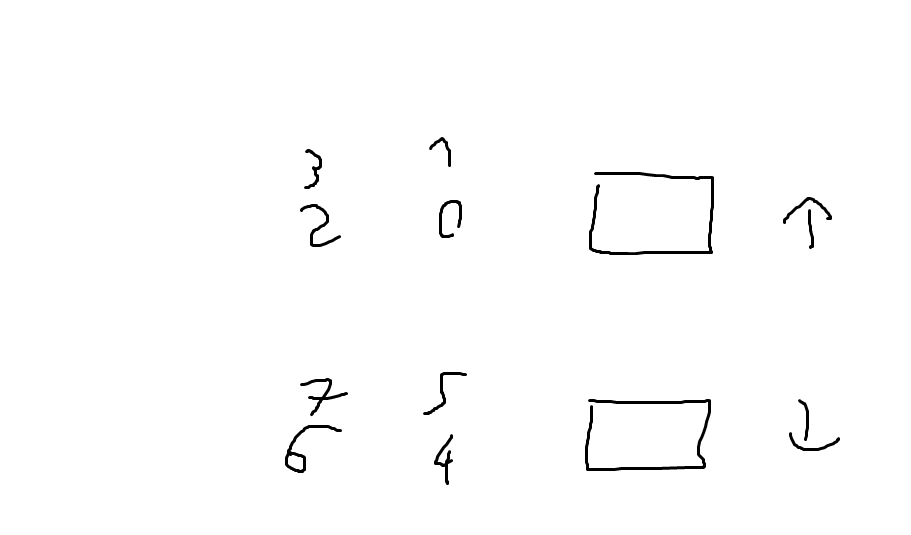 3 1
2 0
7 5
6 4